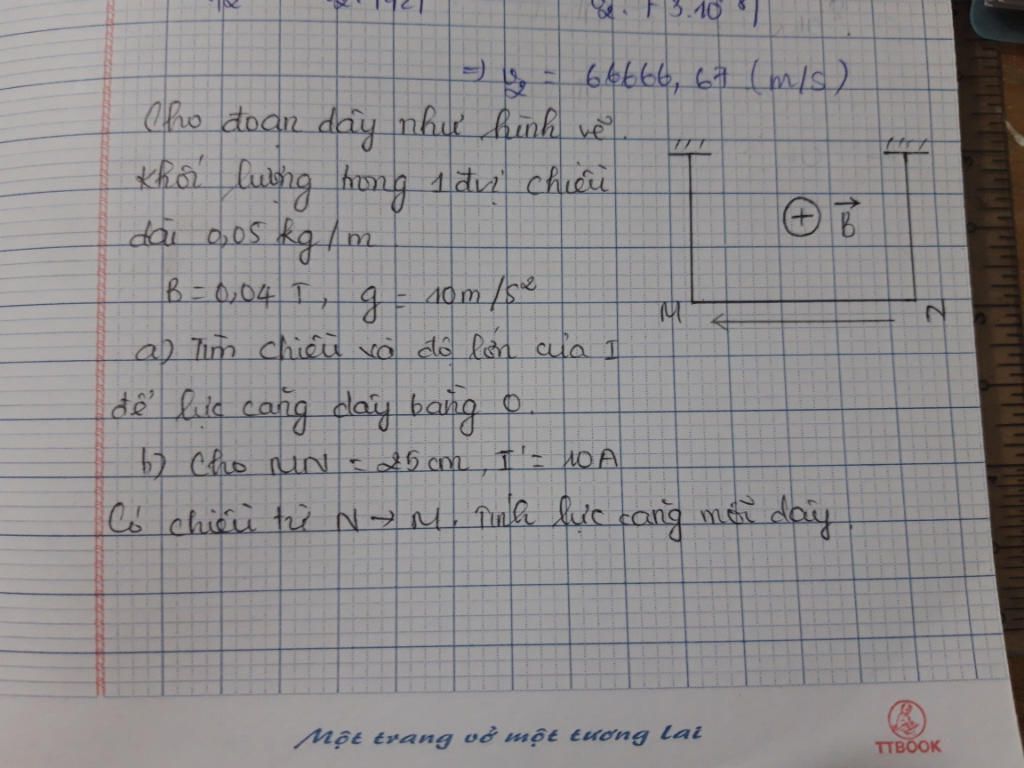 => v₂ = 66666,67 (m/s)
Cho đoạn dây như hình vẽ.
khối lượng trong 1 đvị chiều
dài 0,05 kg/m
B = 0,04 T, g = 10m/s²
a) Tìm chiều và độ lớn của I
để lực căng dây bằng 0.
b) Cho MN = 25cm, I = 10A
Có chiều từ N → M. Tính lực căng mỗi dây.
+ B⃗
M N
Một trang vở một tương lai
TTBOOK